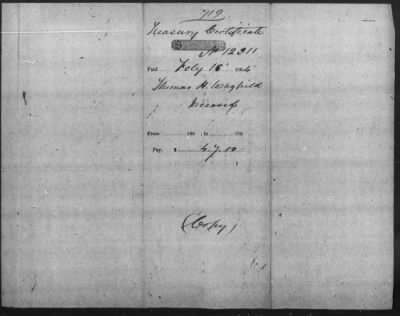 719
Treasury Certificate
No 12311
Paid Feby 18 1864
Thomas H.
Deceased
From 186 to 186
Pay, $ 47.00
(Copy)